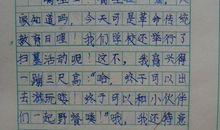 家知道吗，今天可是革命传统
教育日哩！我们学校还举行了
扫墓活动呢！这不，我高兴得
一蹦三尺高："哈，终于可以出
去游玩喽！终于可以和小伙伴
们一起野餐喽！"哦，我还特意